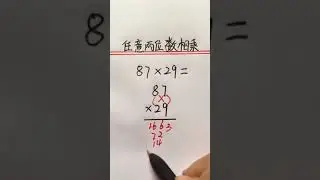 任意两位数相乘
87×29=
87
×29
1663
72
14